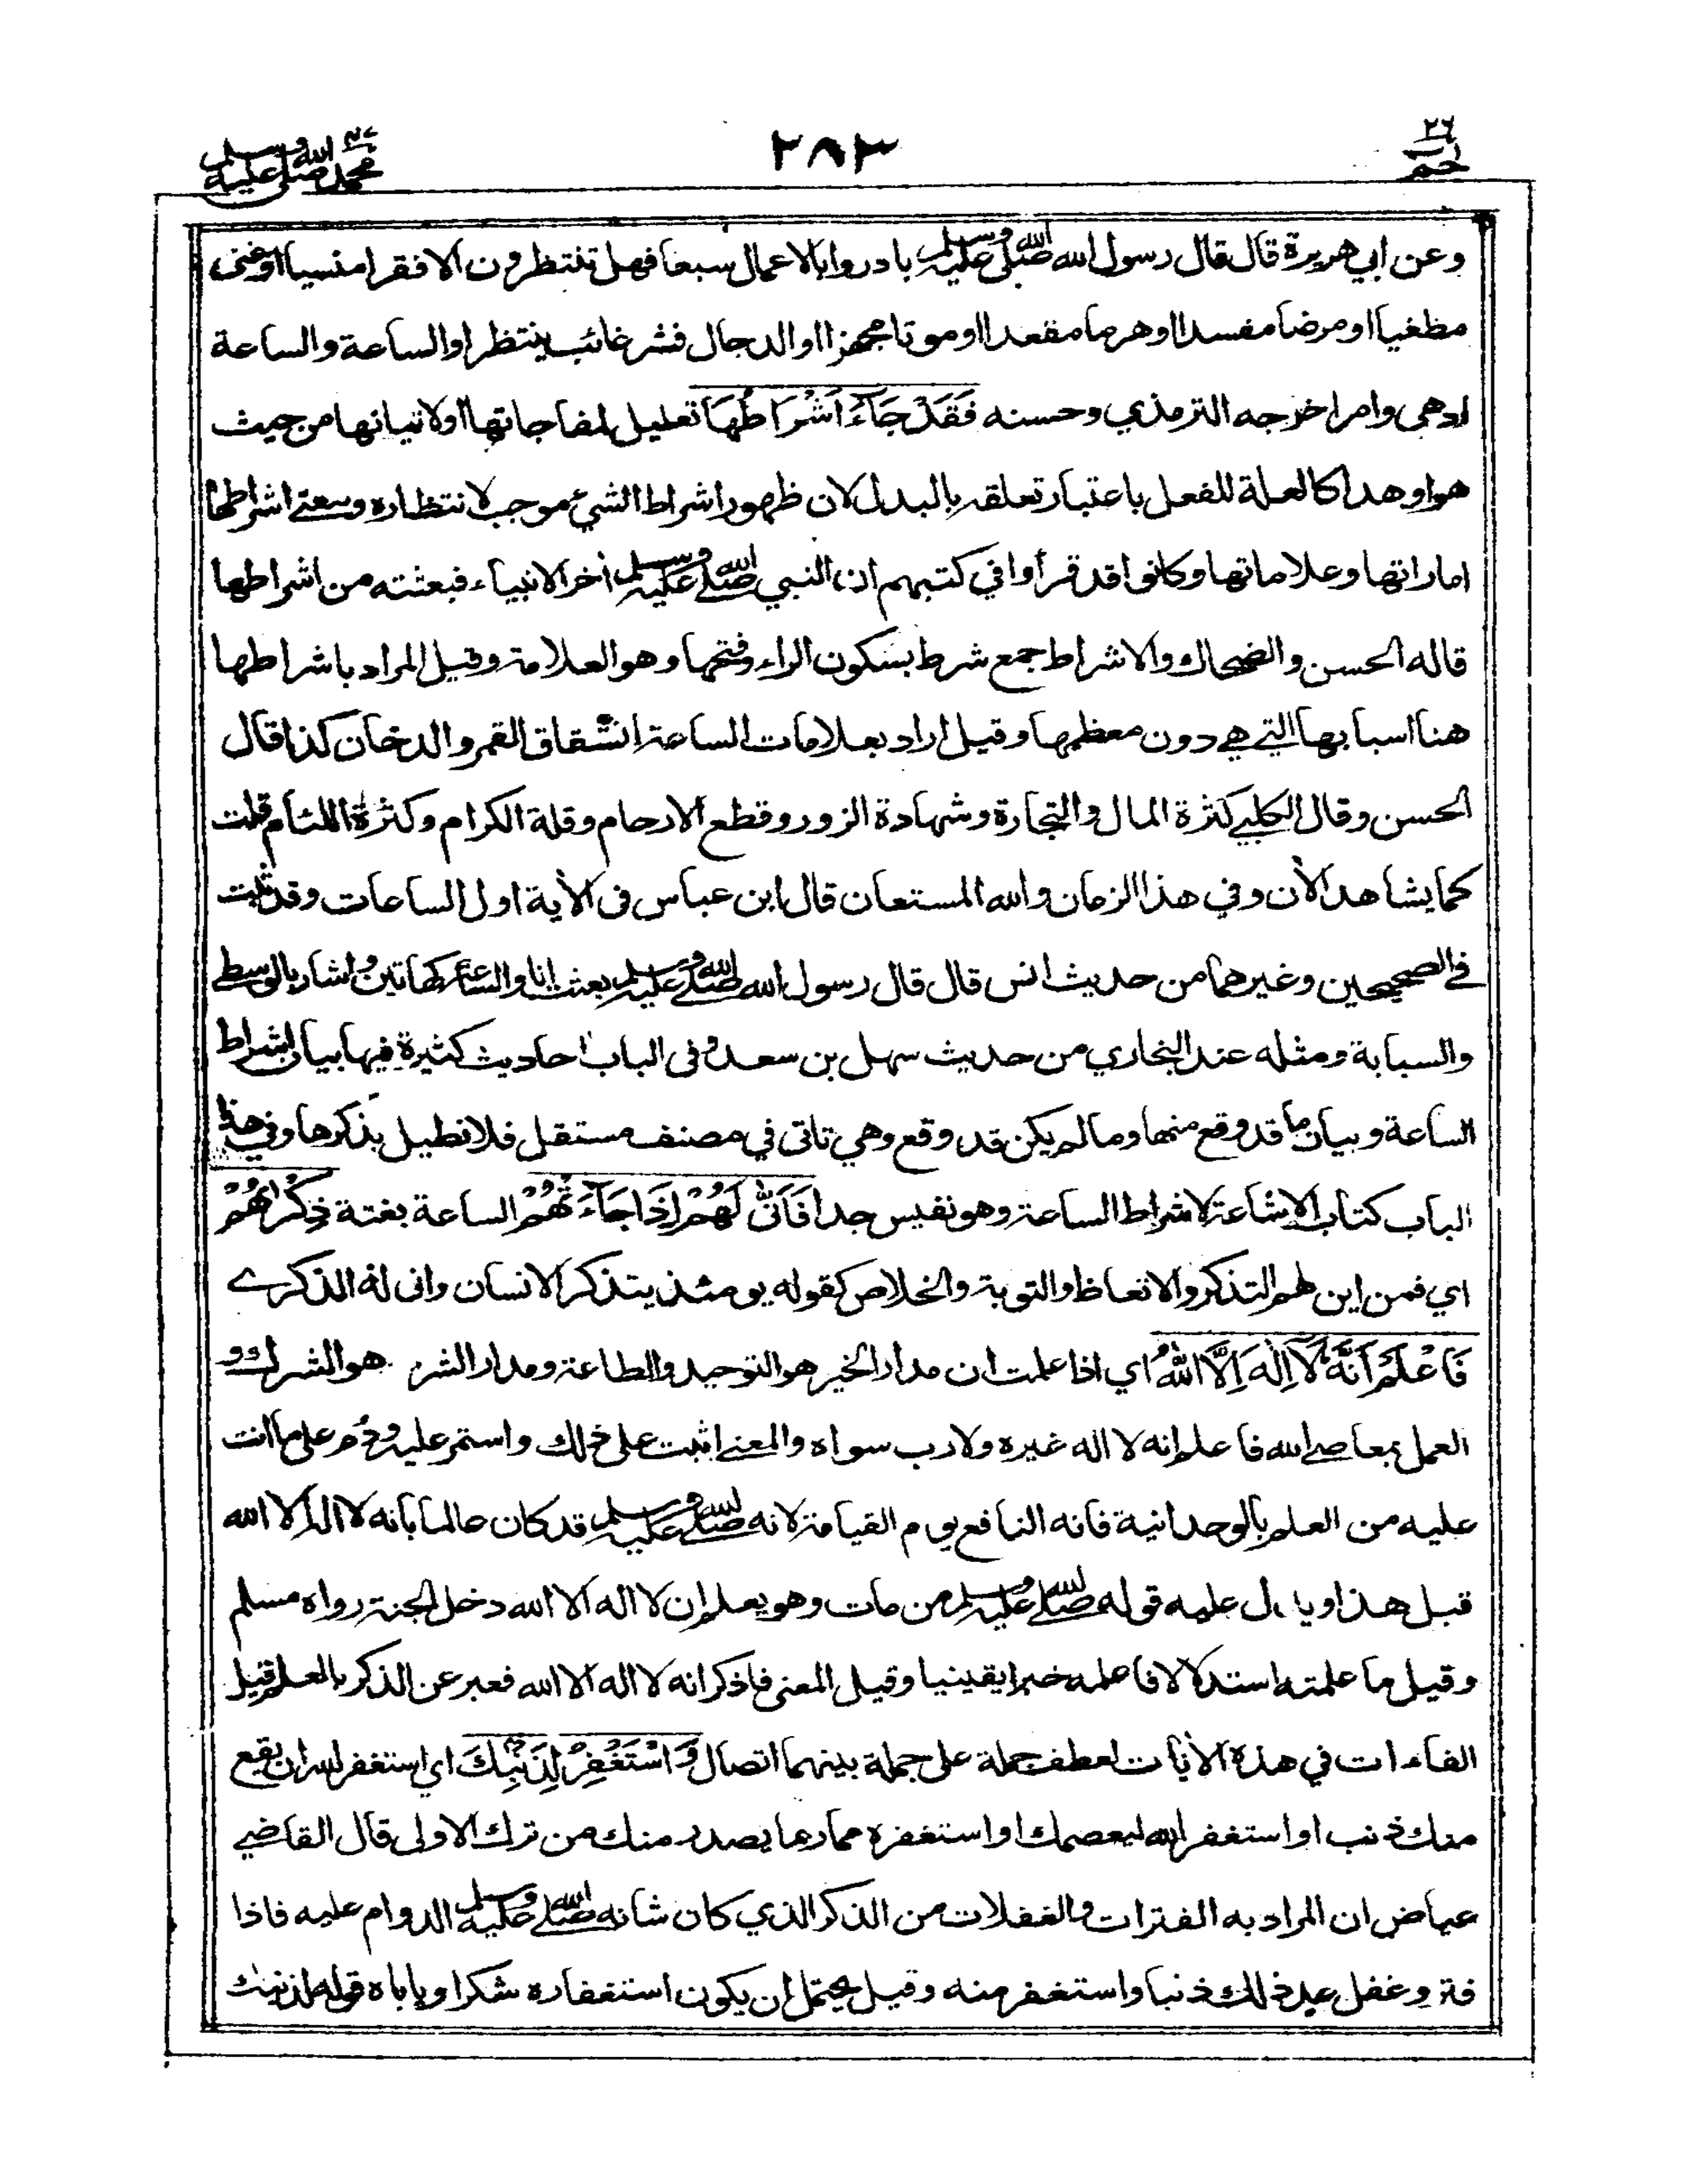 حم ٢٦
٢٨٣
محمد صلى الله عليه وسلم ٤٧
وعن ابي هريرة قال قال رسول الله صلى الله عليه وسلم بادروا بالاعمال سبعا فهل تنتظرون الا فقرا منسيا او غنى
مطغيا او مرضا مفسدا او هرما مقعدا او موتا مجهزا او الدجال فشر غائب ينتظر او الساعة والساعة
ادهى وامر اخرجه الترمذي وحسنه فَقَدْ جَآءَ اَشْرَاطُهَا تعليل لمفاجاتها او لاتيانها من حيث
هو او هذا كالعلة للفعل باعتبار تعلقه بالبدل لان ظهور اشراط الشيء موجب لانتظاره ومعنى اشراطها
اماراتها وعلاماتها وكانوا قد قرأوا في كتبهم ان النبي صلى الله عليه وسلم اخر الانبياء فبعثته من اشراطها
قاله الحسن والضحاك والاشراط جمع شرط بسكون الراء وفتحها وهو العلامة وقيل المراد باشراطها
هنا اسبابها التي هي دون معظمها وقيل اراد بعلامات الساعة انشقاق القمر والدخان كذا قال
الحسن وقال الكلبي كثرة المال والتجارة وشهادة الزور وقطع الارحام وقلة الكرام وكثرة اللئام قلت
كما يشاهد الأن وفي هذا الزمان والله المستعان قال ابن عباس فى الأية اول الساعات وقد ثبت
في الصحيحين وغيرهما من حديث انس قال قال رسول الله صلى الله عليه وسلم بعثت انا والساعة كهاتين واشار بالوسطى
والسبابة ومثله عند البخاري من حديث سهل بن سعد وفى الباب احاديث كثيرة فيها بيان اشراط
الساعة وبيان ما قد وقع منها وما لم يكن قد وقع وهي تاتى في مصنف مستقل فلا نطيل بذكرها وفي هذا
الباب كتاب الاشاعة لاشراط الساعة وهو نفيس جدا فَاَنّٰى لَهُمْ اِذَا جَآءَتْهُمْ الساعة بغتة ذِكْرٰىهُمْ
اي فمن اين لهم التذكر والاتعاظ والتوبة والخلاص كقوله يومئذ يتذكر الانسان وانى له الذكرى
فَاعْلَمْ اَنَّهٗ لَآ اِلٰهَ اِلَّا اللّٰهُ اي اذا علمت ان مدار الخير هو التوحيد والطاعة ومدار الشر هو الشرك و
العمل بمعاصي الله فاعلم انه لا اله غيره ولا رب سواه والمعنى اثبت على ذلك واستمر عليه ودُم على ما انت
عليه من العلم بالوحدانية فانه النافع يوم القيامة لانه صلى الله عليه وسلم قد كان عالما بأنه لا اله الا الله
قبل هذا ويدل عليه قوله صلى الله عليه وسلم من مات وهو يعلم ان لا اله الا الله دخل الجنة رواه مسلم
وقيل ما علمته استدلالا فاعلمه خبرا يقينيا وقيل المعنى فاذكر انه لا اله الا الله فعبر عن الذكر بالعلم قيل
الفاءات في هذه الأيات لعطف جملة على جملة بينهما اتصال وَاسْتَغْفِرْ لِذَنْۢبِكَ اي استغفر لله ان يقع
منك ذنب او استغفر الله ليعصمك او استغفره مما ربما يصدر منك من ترك الاولى قال القاضي
عياض ان المراد به الفترات والغفلات من الذكر الذي كان شانه صلى الله عليه وسلم الدوام عليه فاذا
فتر وغفل عد ذلك ذنبا واستغفر منه وقيل يحتمل ان يكون استغفاره شكرا وياباه قوله لذنبك